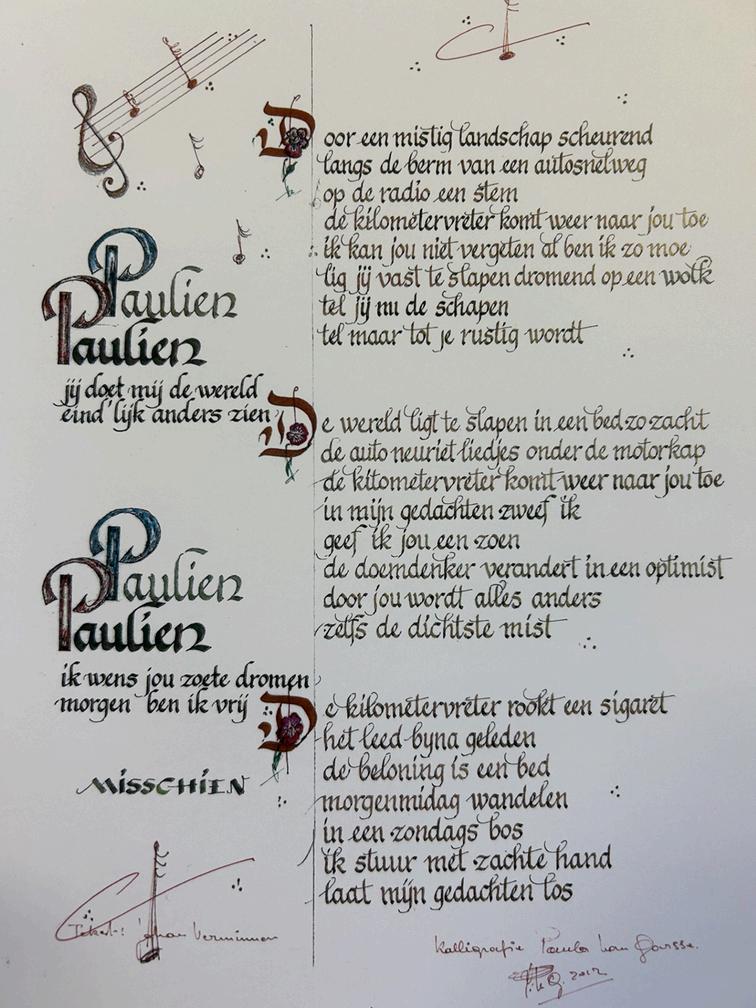 Door een mistig landschap scheurend
langs de berm van een autosnelweg
op de radio een stem
de kilometervreter komt weer naar jou toe
ik kan jou niet vergeten al ben ik zo moe
lig jij vast te slapen dromend op een wolk
tel jij nu de schapen
tel maar tot je rustig wordt
Paulien
Paulien
jij doet mij de wereld
eind'lijk anders zien
De wereld ligt te slapen in een bed zo zacht
de auto neuriet liedjes onder de motorkap
de kilometervreter komt weer naar jou toe
in mijn gedachten zweef ik
geef ik jou een zoen
de doemdenker verandert in een optimist
door jou wordt alles anders
zelfs de dichtste mist
Paulien
Paulien
ik wens jou zoete dromen
morgen ben ik vrij
De kilometervreter rookt een sigaret
het leed byna geleden
de beloning is een bed
morgenmidag wandelen
in een zondags bos
ik stuur met zachte hand
laat mijn gedachten los
MISSCHIEN
Tekst: Johan Verminnen
Kalligrafie Paula Van
2012